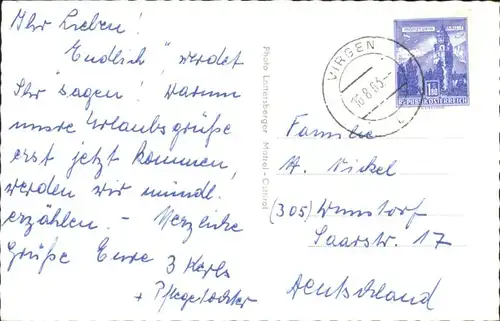 Ihr Lieben!
"Endlich", werdet
Ihr sagen! Warum
unsre Urlaubsgrüße
erst jetzt kommen,
werden wir mündl.
erzählen. – Herzliche
Grüße Eure 3 Kerls
+ Pflegetochter
Photo Lottersberger Matrei-Osttirol
VIRGEN
16.8.65
REPUBLIK ÖSTERREICH
Familie
H. Nickel
(305) Wunstorf
Saarstr. 17
Deutschland